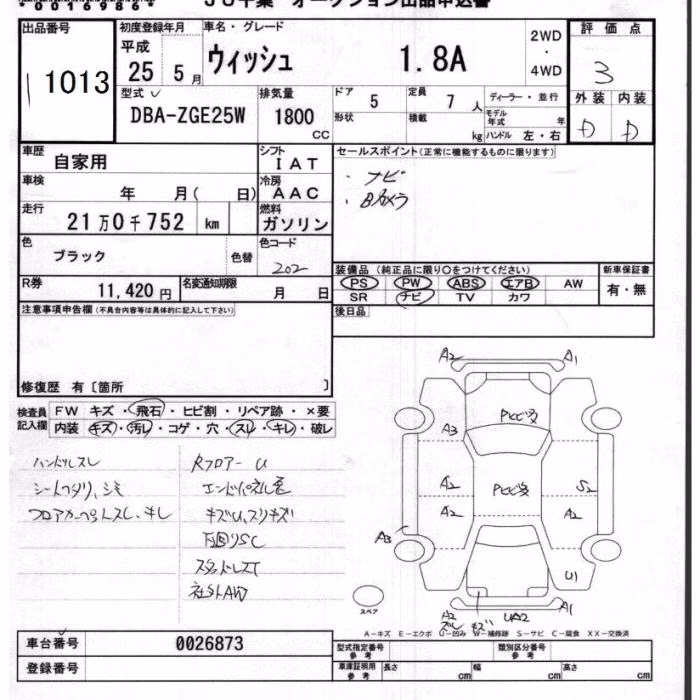 *00109860*
JU千葉 オークション出品申込書
出品番号
1013
初度登録年月
平成
25 5月
車名・グレード
ウィッシュ 1.8A
2WD
・
4WD
評価点
3
外装 内装
D D
型式
DBA-ZGE25W
排気量
1800
CC
ドア
5
形状
定員
7 人
積載
kg
ディーラー・並行
モデル年式 年
ハンドル 左・右
車歴
自家用
シフト
IAT
車検
年 月( 日)
冷房
AAC
走行
21万0千752 km
燃料
ガソリン
色
ブラック
色替
色コード
202
R券
11,420円
名変通知期限
月 日
セールスポイント(正常に機能するものに限ります)
・ナビ
・Bカメラ
装備品(純正品に限り○をつけてください)
PS PW ABS エアB AW
SR ナビ TV カワ
新車保証書
有・無
後日品
注意事項申告欄(不具合内容等は具体的に記入して下さい)
修復歴 有〔箇所 〕
検査員記入欄
FW キズ・飛石・ヒビ割・リペア跡・×要
内装 キズ・汚レ・コゲ・穴・スレ・キレ・破レ
ハンドルスレ
シートヘタリ、シミ
Rフロアー U
キズU、スリキズ
下回りSC
社外AW
A2 A1
A3
A2 A2
S2
A2
A3
U1
A2
キズ
UA2
A1
スペア
A-キズ E-エクボ U-凹み W-補修跡 S-サビ C-腐食 XX-交換済
車台番号
0026873
登録番号
型式指定番号
参考
類別区分番号
参考
車庫証明用
参考
長さ cm
幅 cm
高さ cm